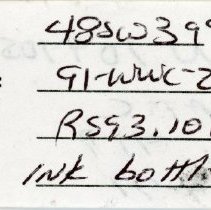 48SW399
: 91-WWC-2
RS93.10
INK bottle